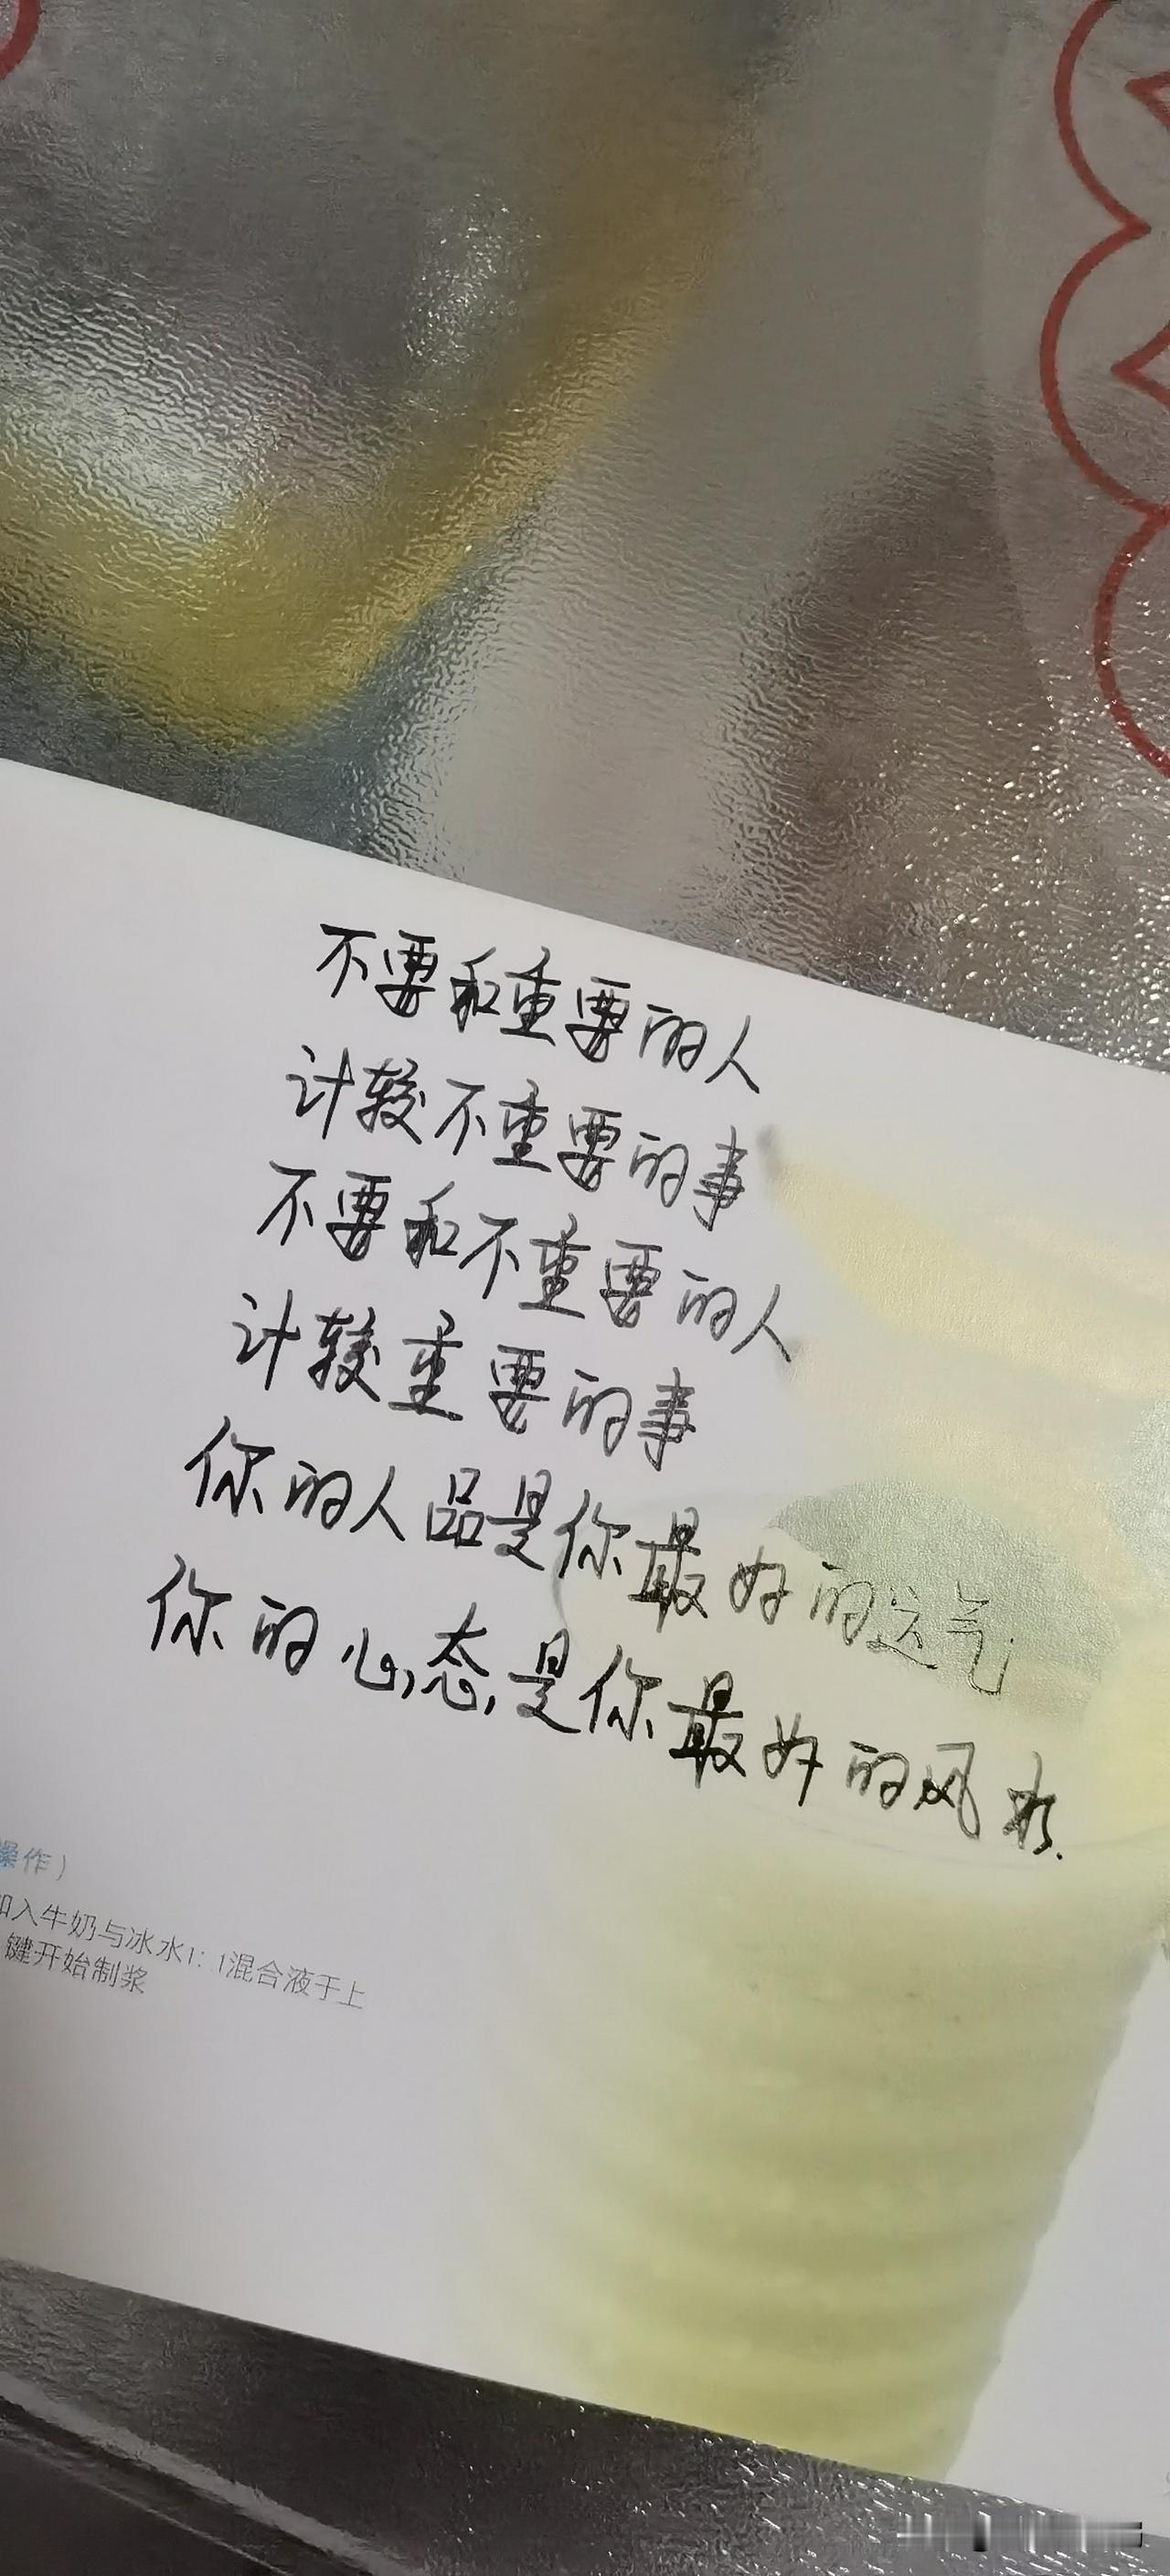 不要和重要的人
计较不重要的事
不要和不重要的人
计较重要的事
你的人品是你最好的运气
你的心态是你最好的风水.
操作）
加入牛奶与冰水1：1混合液于上
键开始制浆